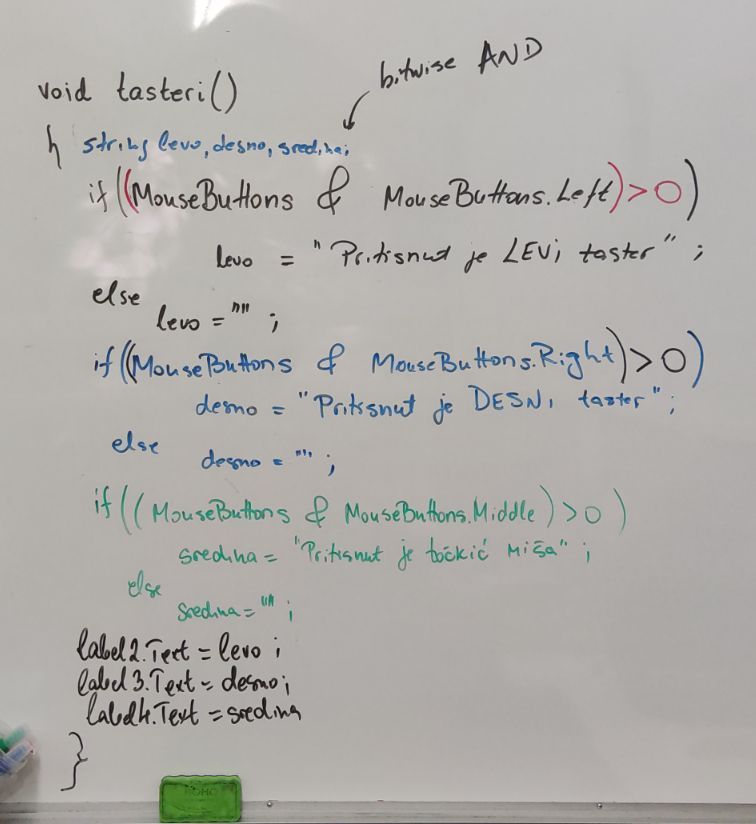 bitwise AND
void tasteri()
{ string levo, desno, sredina;
if((MouseButtons & MouseButtons.Left)>0)
levo = "Pritisnut je LEVi taster" ;
else
levo = "" ;
if((MouseButtons & MouseButtons.Right)>0)
desno = "Pritisnut je DESNi taster" ;
else
desno = "" ;
if((MouseButtons & MouseButtons.Middle)>0)
sredina = "Pritisnut je točkić miša" ;
else
sredina = "" ;
label2.Text = levo ;
label3.Text = desno;
label4.Text = sredina
}